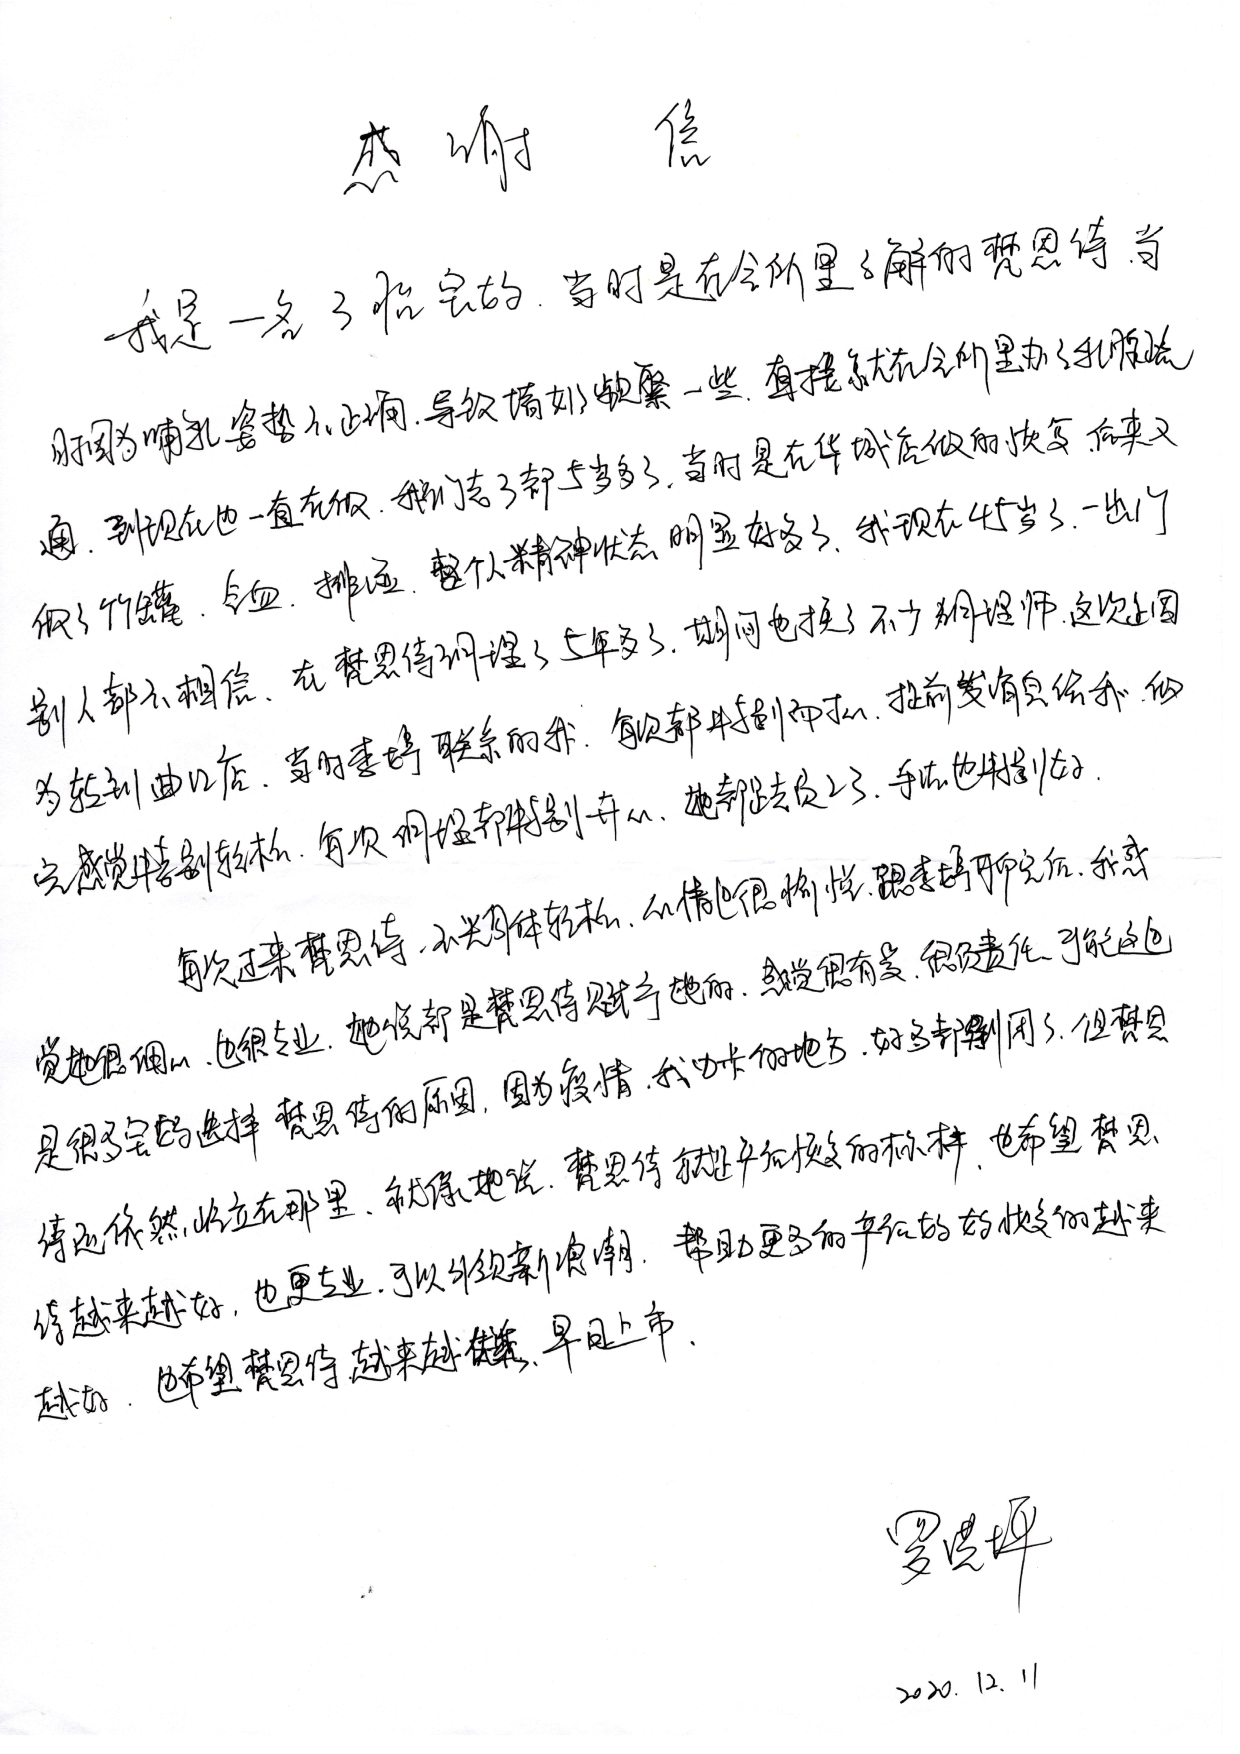 感谢 信
我是一名二胎宝妈.当时是在会所里了解的梵恩诗.当
时因为哺乳姿势不正确.导致堵奶频繁一些.直接就在会所里办了乳腺疏
通.到现在也一直在做.我们老二都5岁多了.当时是在华城店做的恢复.后来又
做了竹罐.合血.排湿.整个人精神状态明显好多了.我现在45岁了.一出门
别人都不相信.在梵恩诗调理了5年多了.期间也换了不少调理师.这次又因
为转到曲江店.当时李婷联系的我.每次都特别耐心.提前发消息给我.做
完感觉特别轻松.每次调理都特别开心.她都是老员工了.手法也特别好.
每次过来梵恩诗.不光身体轻松.心情也很愉悦.跟李婷聊完后.我感
觉她很细心.也很专业.她说都是梵恩诗赋予她的.感觉很有爱.很负责任.可能这也
是很多宝妈选择梵恩诗的原因.因为疫情.我办卡的地方.好多都倒闭了.但梵恩
诗还依然屹立在那里.就像她说.梵恩诗就是产后恢复的标杆.也希望梵恩
诗越来越好.也更专业.可以引领新浪潮.帮助更多的产后妈妈恢复的越来
越好.也希望梵恩诗越来越.早日上市.
罗浩坪
2020.12.11